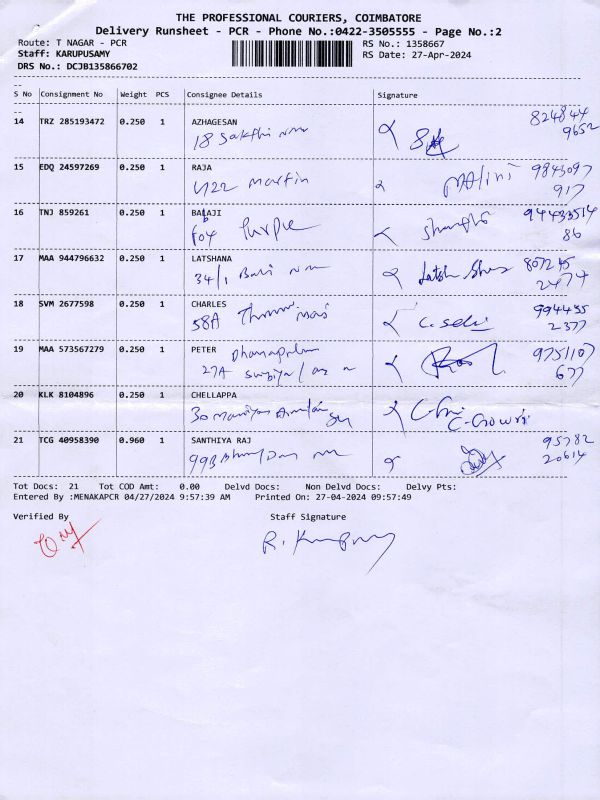 THE PROFESSIONAL COURIERS, COIMBATORE
Delivery Runsheet - PCR - Phone No.:0422-3505555 - Page No.:2
Route: T NAGAR - PCR RS No.: 1358667
Staff: KARUPUSAMY RS Date: 27-Apr-2024
DRS No.: DCJB135866702
S No Consignment No Weight PCS Consignee Details Signature
14 TRZ 285193472 0.250 1 AZHAGESAN 824844
18 Sakthi 9652
15 EDQ 24597269 0.250 1 RAJA 9843097
U22 Martin Malini 917
16 TNJ 859261 0.250 1 BALAJI
Fo4 Purple 86
17 MAA 944796632 0.250 1 LATSHANA 807245
34/1 2474
18 SVM 2677598 0.250 1 CHARLES 994435
58A C. Selvi 2377
19 MAA 573567279 0.250 1 PETER 9751107
27A 677
20 KLK 8104896 0.250 1 CHELLAPPA
30 C. Gowri
21 TCG 40958390 0.960 1 SANTHIYA RAJ 95782
99B 20614
Tot Docs: 21 Tot COD Amt: 0.00 Delvd Docs: Non Delvd Docs: Delvy Pts:
Entered By :MENAKAPCR 04/27/2024 9:57:39 AM Printed On: 27-04-2024 09:57:49
Verified By Staff Signature